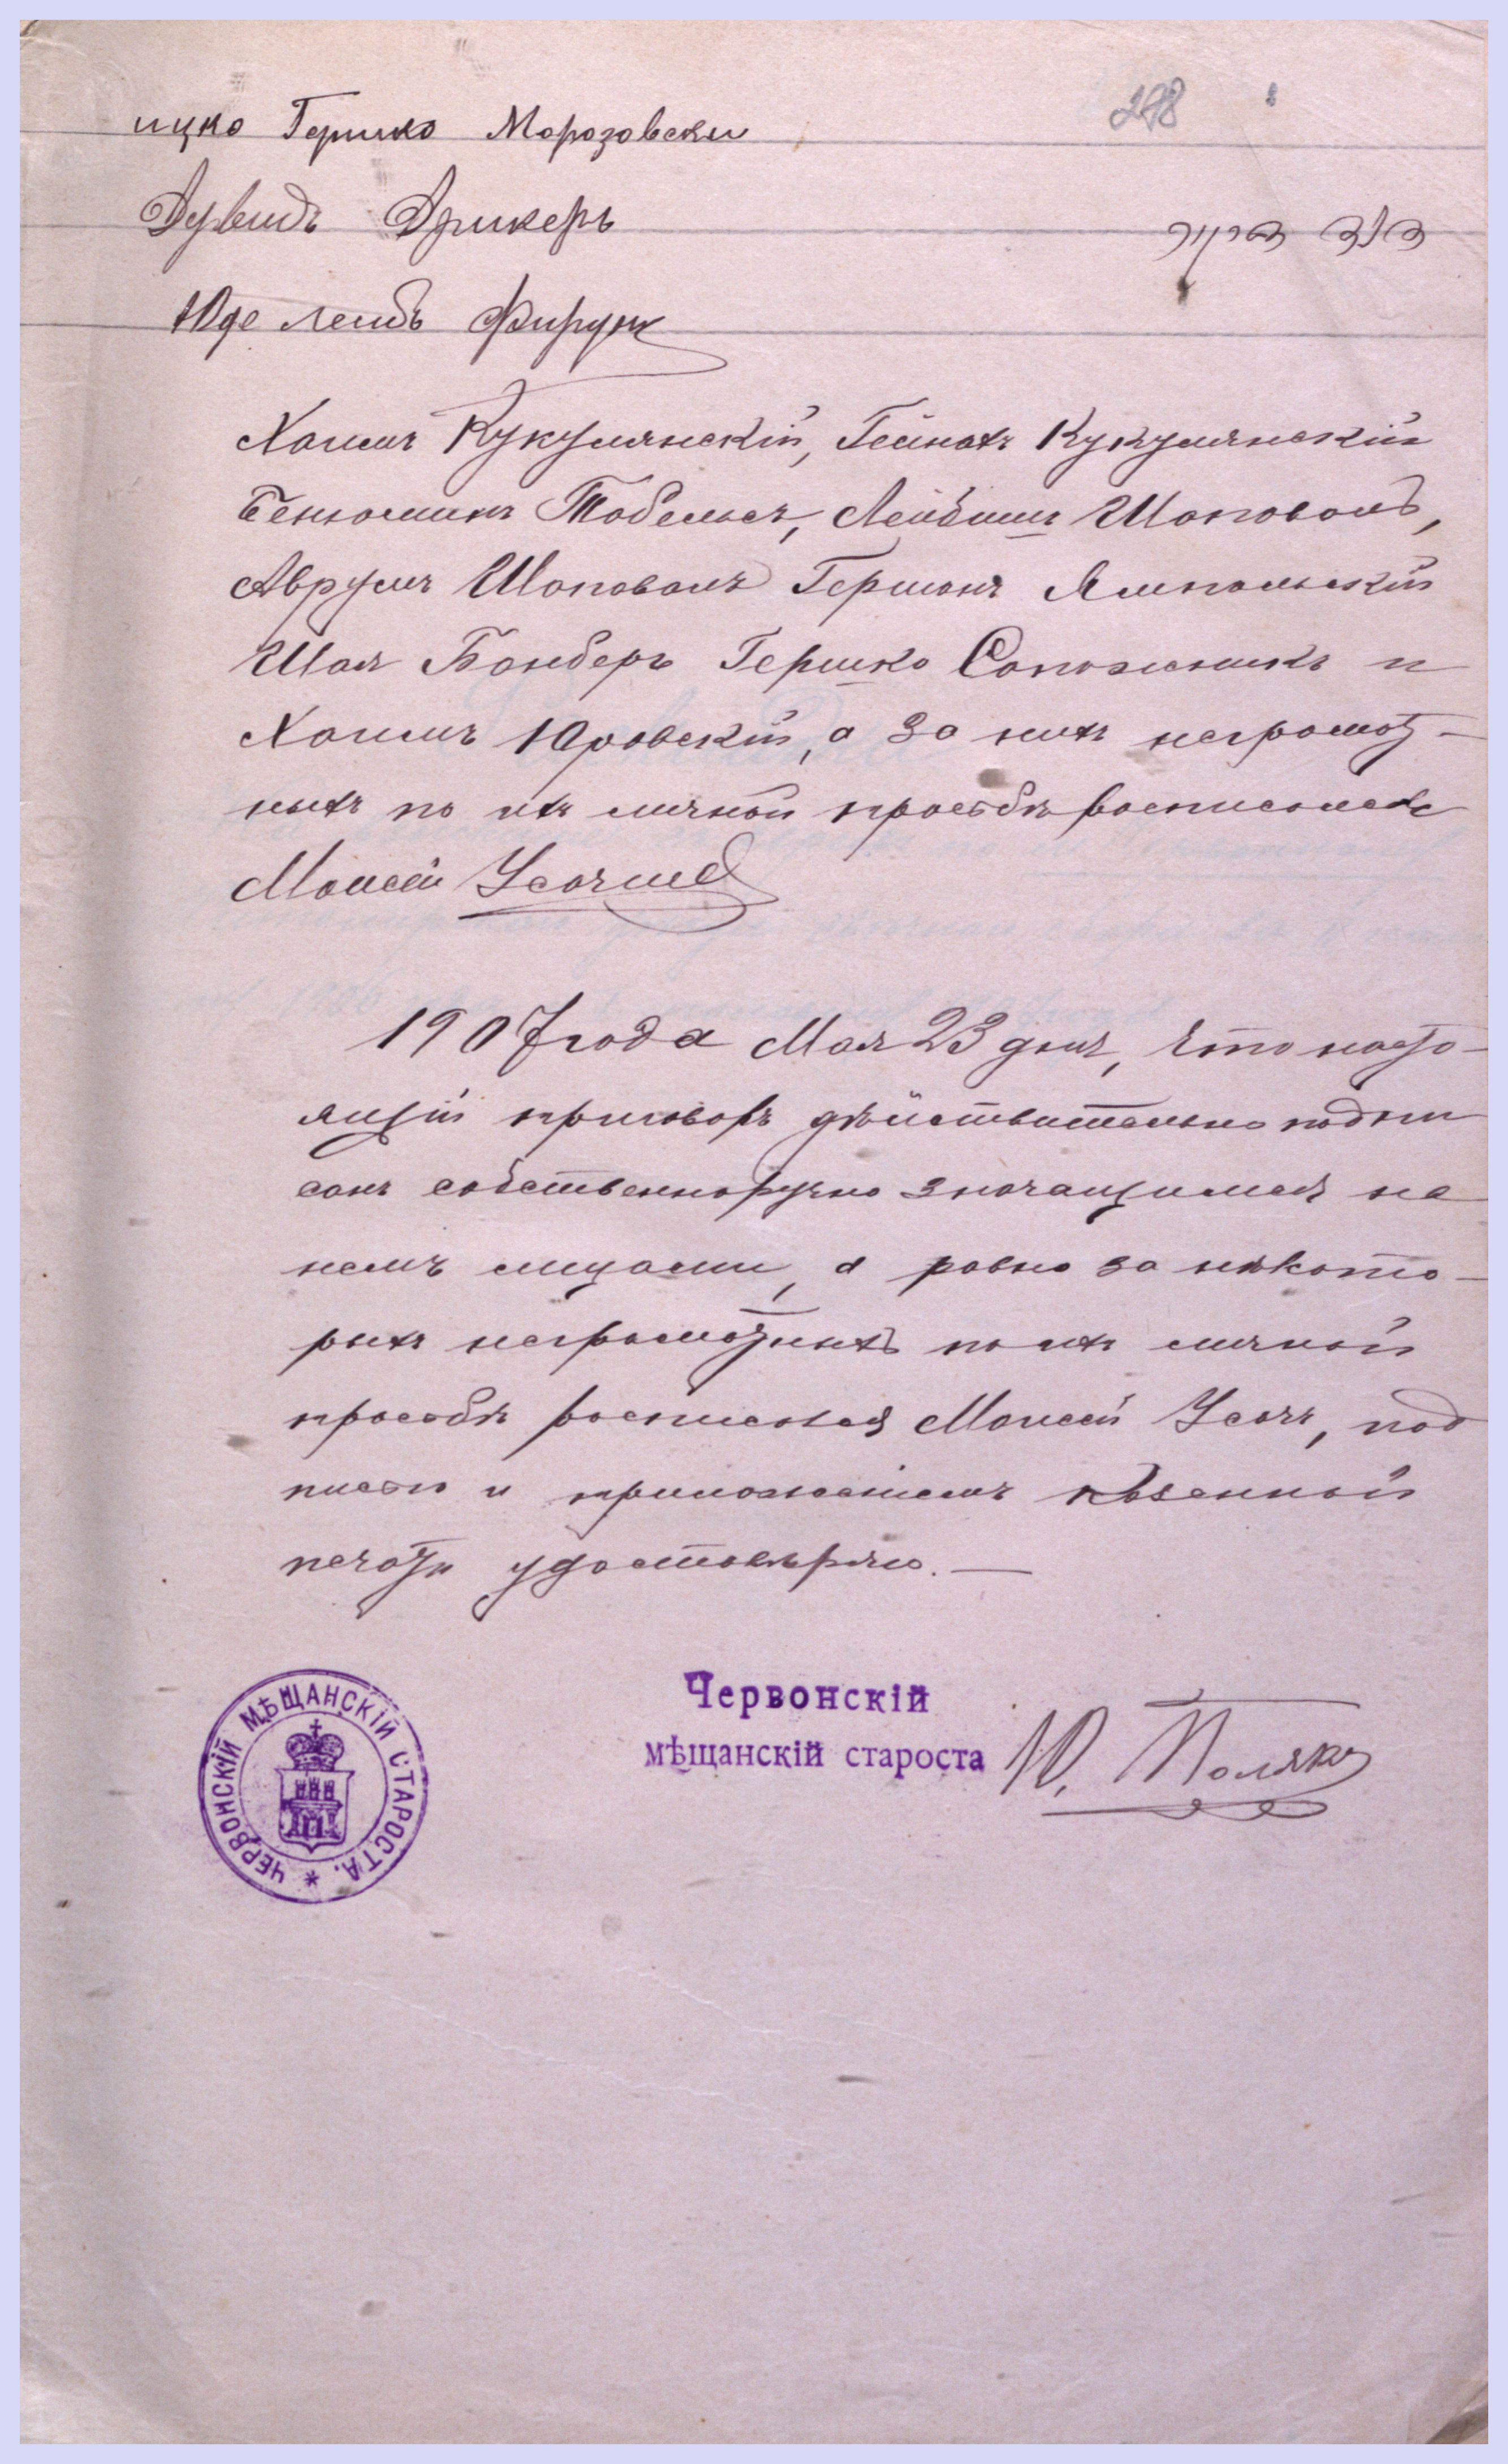 298
ицко Гершко Морозовски
Дувидъ Дрикеръ
Юде Леибъ Фирун
Хаимъ Кукулянскій, Гейнахъ Кукулянскій
Бенюминъ Тобельсъ, Лейбишъ Шаповалъ,
Аврумъ Шаповалъ Гершонъ Ямпольскій
Шая Бонберъ Гершко Сапожникъ и
Хаимъ Юровскій, а за нихъ неграмот-
ныхъ по ихъ личной просьбѣ росписался
Моисей Усачъ
1907 года Мая 23 дня, что насто-
ящій приговоръ дѣйствительно подпи
санъ собственноручно значащимися на
немъ лицами, а равно за нѣкото-
рыхъ неграмотныхъ по ихъ личной
просьбѣ росписался Моисей Усачъ, под
писью и приложеніемъ казенной
печати удостовѣряю. —
Червонскій
мѣщанскій староста Ю. Полякъ
ЧЕРВОНСКІЙ МѢЩАНСКІЙ СТАРОСТА. *